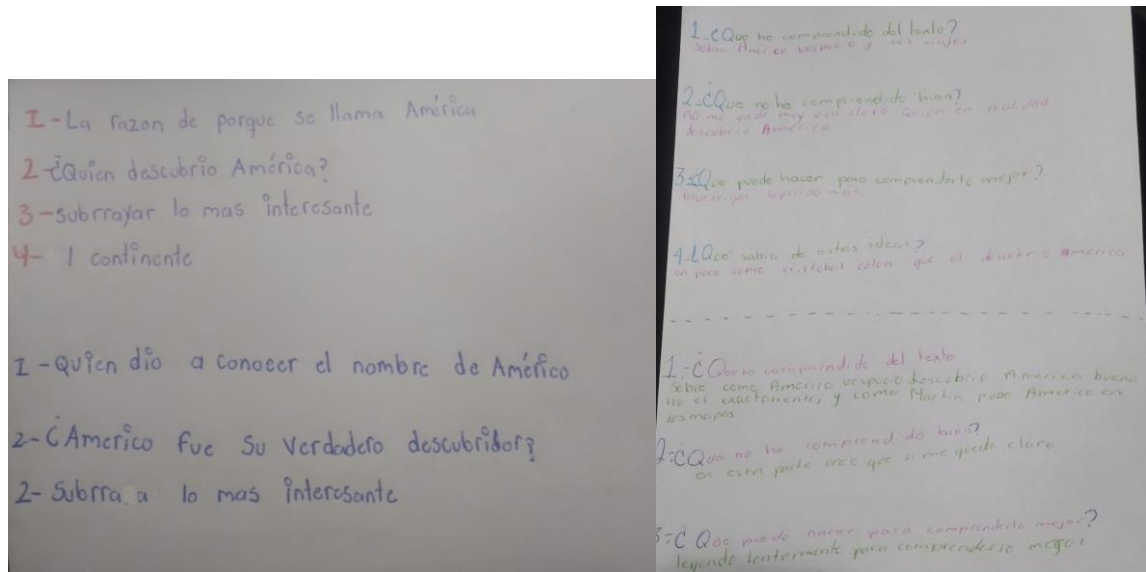 I-La razon de porque se llama América
2-¿Quien descubrio América?
3-subrrayar lo mas interesante
4- 1 continente
I-Quien dio a conocer el nombre de Américo
2-¿Americo fue su verdadero descubridor?
2-Subrra a lo mas interesante
1-¿Que he comprendido del texto?
sobre Americo vespucio y sus viajes
2-¿Que no he comprendido bien?
no me quedo muy bien claro quien en realidad
descubrio America
3-¿Que puedo hacer para comprenderlo mejor?
Investigar leyendo mas
4-¿Que sabia de estas ideas?
un poco sobre cristobal colon que el descubrio America
1-¿Que he comprendido del texto
Sobre como Americo vespucio descubrio America bueno
no el exactamente, y como Martin puso America en
los mapas
2-¿Que no he comprendido bien?
en esta parte creo que si me quedo claro
3-¿Que puedo hacer para comprenderlo mejor?
leyendo lentamente para comprenderlo mejor